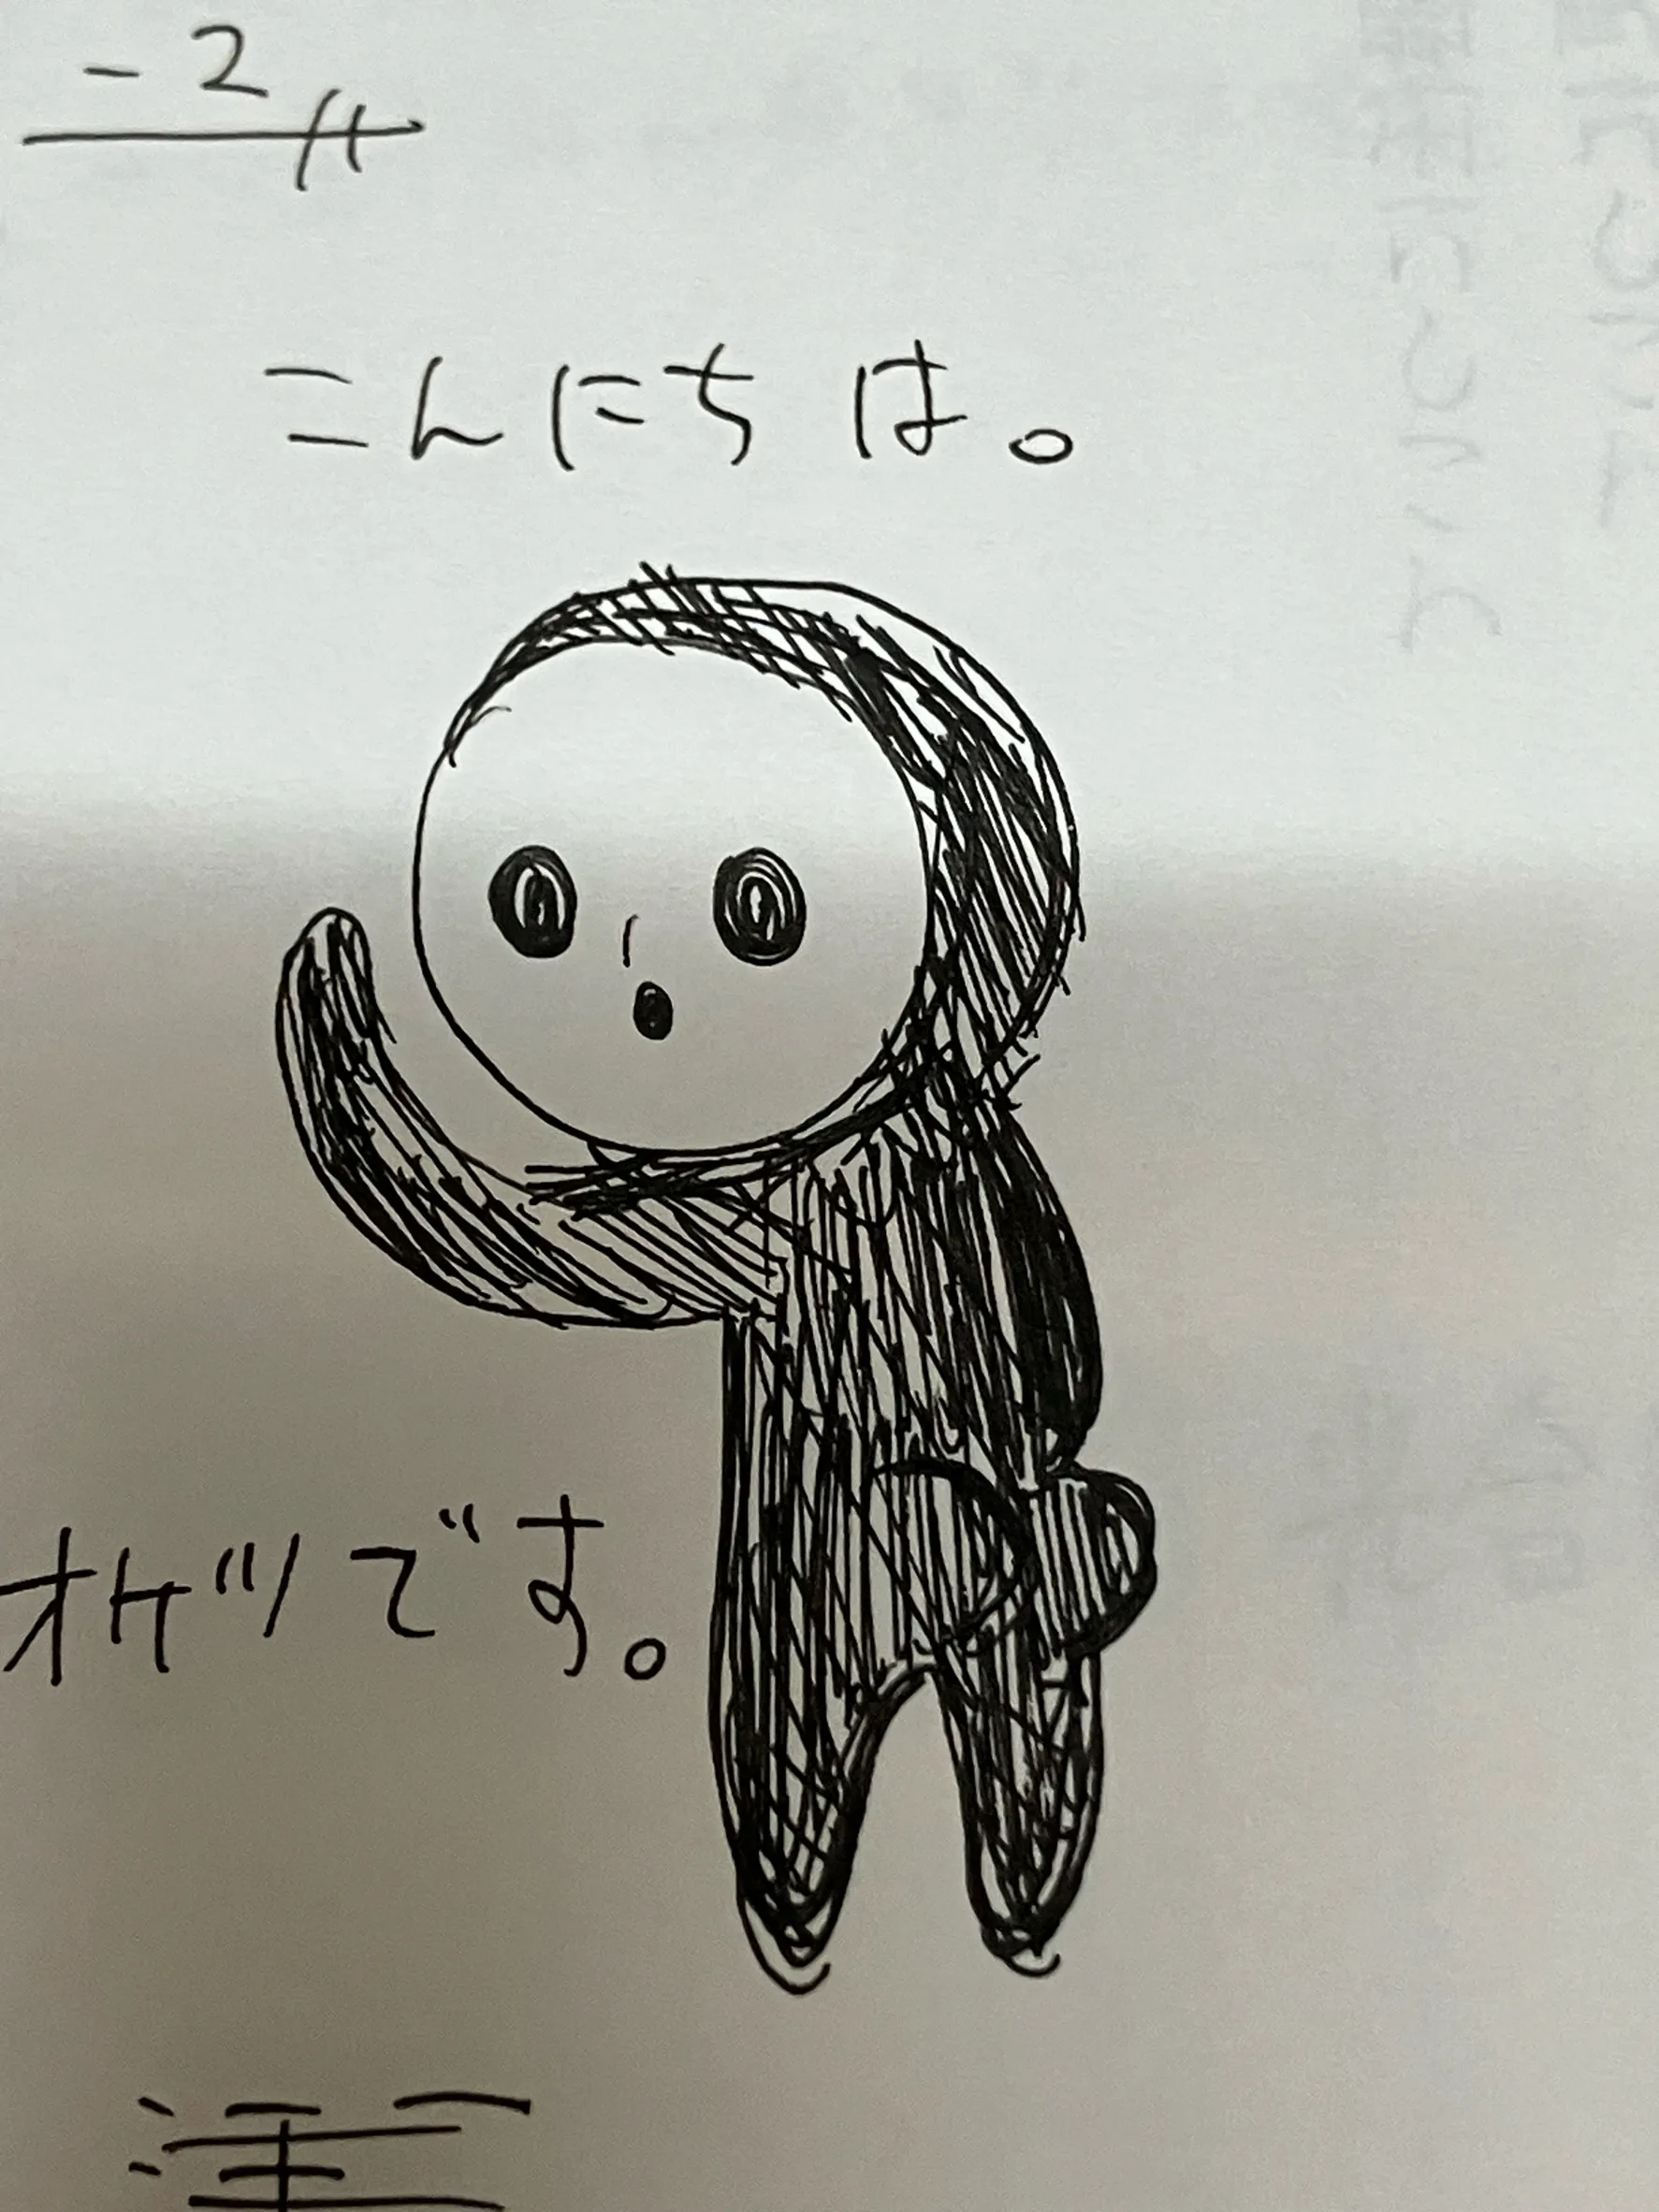 -2
こんにちは。
オケツです。